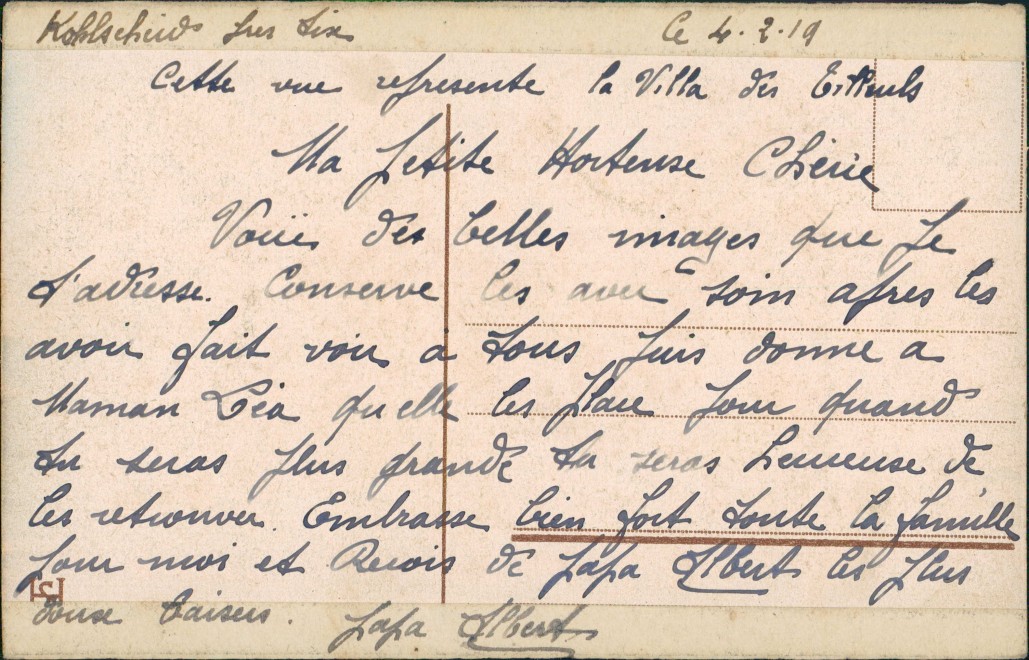 Kohlscheid pres Aix Le 4.2.19
Cette vue represente la Villa des Tilleuls
Ma petite Hortense Chérie
Voiçi des belles images que je
t'adresse. Conserve les avec soin apres les
avoir fait voir a tous puis donne a
Maman Léa qu'elle les place pour quand
tu seras plus grande tu seras heureuse de
les retrouver. Embrasse bien fort toute la famille
pour moi et Reçois de papa Albert les plus
doux baisers. papa Albert